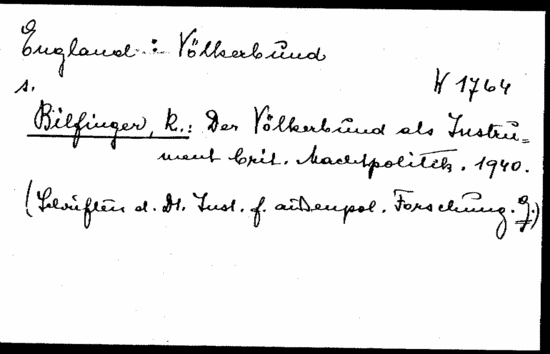 England : Völkerbund
s.
W 1764
Bilfinger, K.: Der Völkerbund als Instru=
ment brit. Machtpolitik. 1940.
(Schriften d. Dt. Inst. f. außenpol. Forschung.)